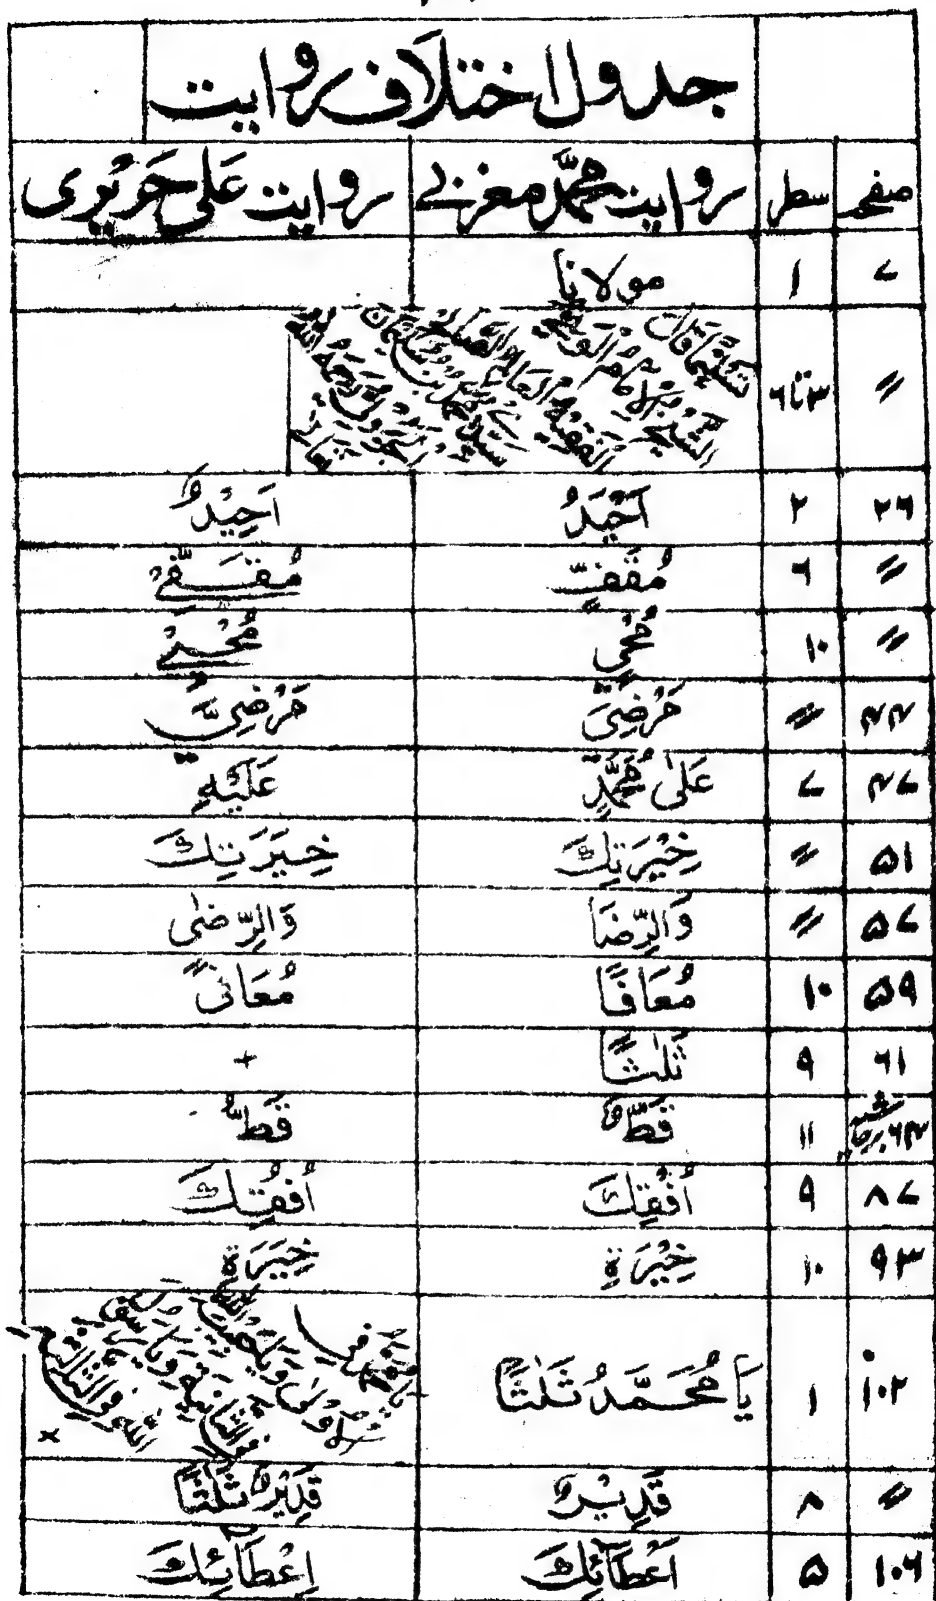 جدول اختلاف روایت
صفحہ سطر روایت محمد مغربی روایت علی حریری
۷ ۱ مولانا
〃 ۳ تا ۶
۲۶ ۲ اَحْيَدُ اَحِيْدٌ
〃 ۶ مُقَفٍّ مُقَفِّىْ
〃 ۱۰ مُحْيٍ مُحْيِىْ
۴۴ 〃 مَرْضِيَّ مَرْضِيٍّ
۴۷ ۷ عَلٰى مُحَمَّدٍ عَلَيْهِ
۵۱ 〃 خِيْرَتِكَ خِيَرَتِكَ
۵۷ 〃 وَالرِّضَا وَالرِّضٰى
۵۹ ۱۰ مُعَافًا مُعَافًى
۶۱ ۹ ثَلٰثًا +
۶۴ ۱۱ قَطُّ قَطُّ
۸۷ ۹ اُفْقِكَ اُفُقِكَ
۹۳ ۱۰ خِيْرَةِ خِيَرَةِ
۱۰۲ ۱ يَا مُحَمَّدُ ثَلٰثًا
〃 ۸ قَدِيْرٌ قَدِيْرٌ ثَلٰثًا
۱۰۶ ۵ اَعْطَائِكَ اِعْطَائِكَ